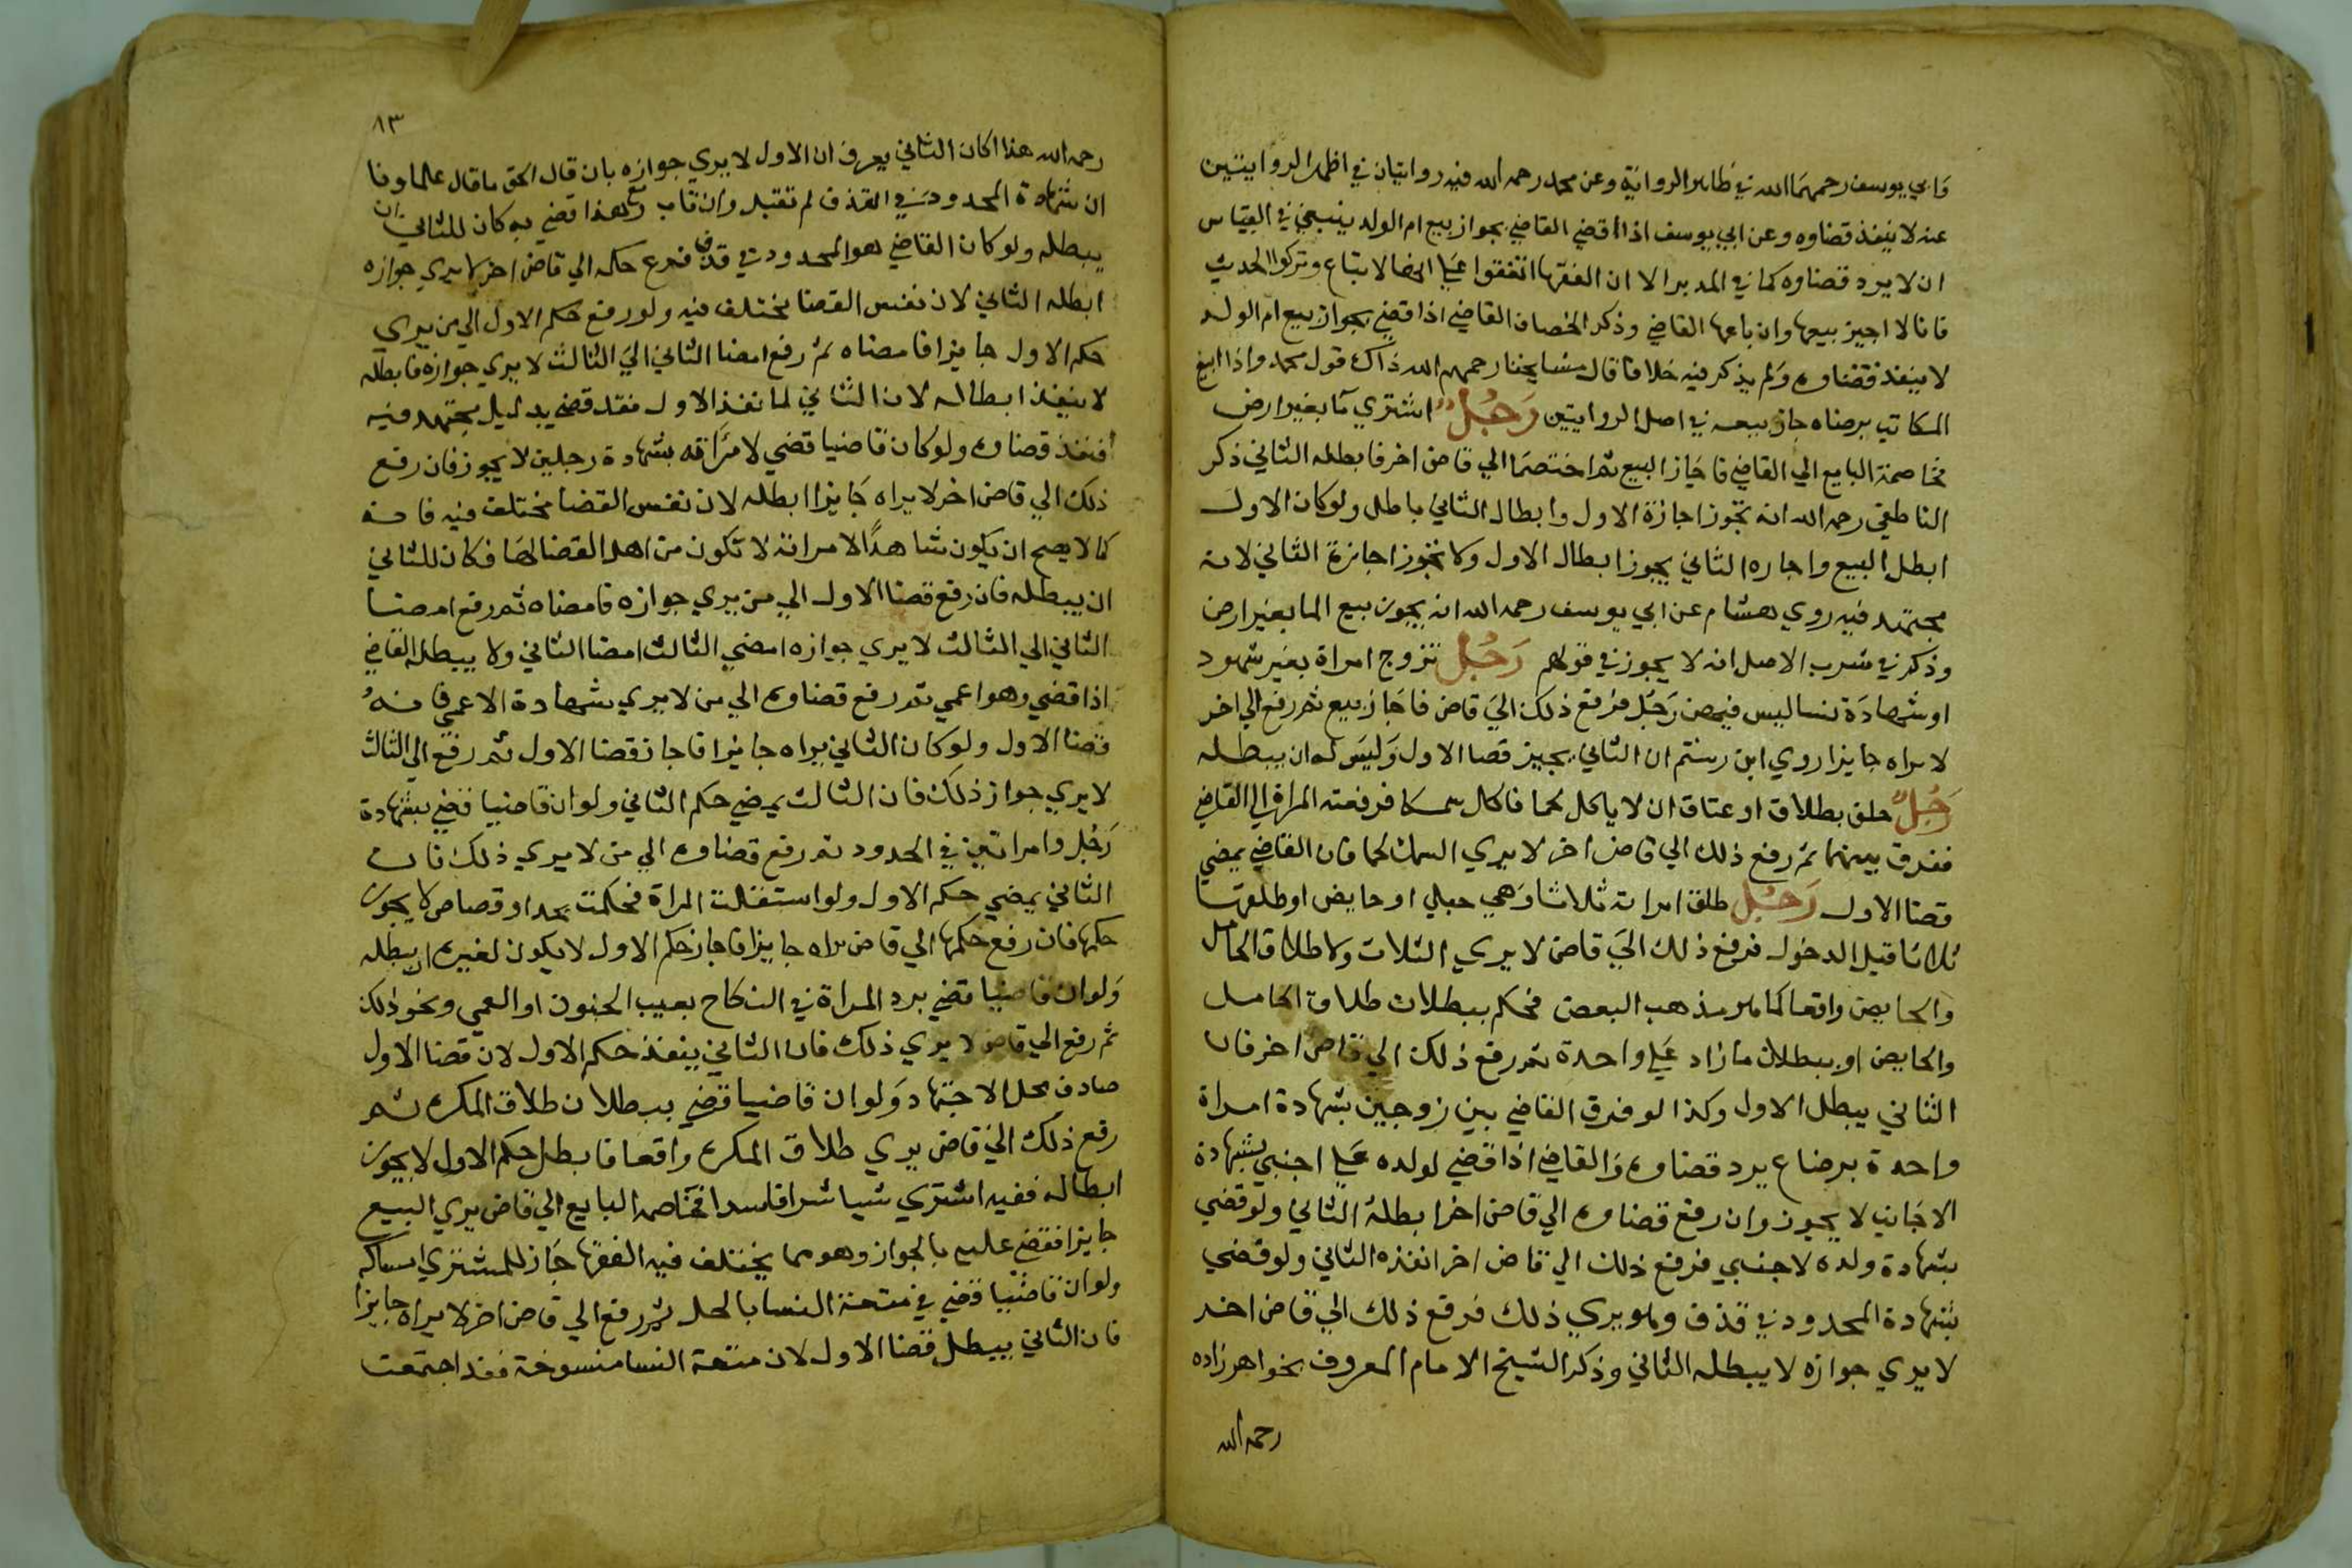 وابي يوسف رحمهما الله في ظاهر الرواية وعن محمد رحمه الله فيه روايتان في اظهر الروايتين
عنه لا ينفذ قضاوه وعن ابي يوسف اذا اقضي القاضي بجواز بيع ام الولد ينبغي في القياس
ان لا يرد قضاوه كما في المدبر الا ان الفقها اتفقوا علي الاتباع وتركوا الحديث
فانا لا اجيز بيعها وان باعها القاضي وذكر الخصاف القاضي اذا قضي بجواز بيع ام الولد
لا ينفذ قضاوه ولم يذكر فيه خلافا قال مشايخنا رحمهم الله ذاك قول محمد واذا ابيع
المكاتب برضاه جاز بيعه في اصل الروايتين رجل اشتري ما بغير ارض
فخاصمة البايع الي القاضي فاجاز البيع ثم اختصما الي قاض اخر فابطله الثاني ذكر
الناطفي رحمه الله انه تجوز اجازة الاول وابطال الثاني باطل ولو كان الاول
ابطل البيع واجازه الثاني يجوز ابطال الاول ولا تجوز اجازة الثاني لانه
مجتهد فيه روي هشام عن ابي يوسف رحمه الله انه يجوز بيع الما بغير ارض
وذكر في شرب الاصل انه لا يجوز في قولهم رجل تزوج امراة بغير شهود
او شهادة نسا ليس فيهن رجل فرفع ذلك الي قاض فاجاز بيع ثم رفع الي اخر
لا يراه جايزا روي ابن رستم ان الثاني يجيز قضا الاول وليس له ان يبطله
رجل حلف بطلاق او عتاق ان لا ياكل لحما فاكل سمكا فرفعته المراة الي القاضي
ففرق بينهما ثم رفع ذلك الي قاض اخر لا يري السمك لحما فان القاضي يمضي
قضا الاول رجل طلق امراته ثلاثا وهي حبلي او حايض او طلقها
ثلاثا قبل الدخول فرفع ذلك الي قاض لا يري الثلاث ولا طلاق الحامل
والحايض واقعا كما هو مذهب البعض فحكم ببطلان طلاق الحامل
والحايض او ببطلان ما زاد علي واحدة ثم رفع ذلك الي قاض اخر فان
الثاني يبطل الاول وكذا لو فرق القاضي بين زوجين بشهادة امراة
واحدة برضاع يرد قضاوه والقاضي اذا قضي لولده علي اجنبي بشهادة
الاجانب لا يجوز وان رفع قضاوه الي قاض اخر ابطله الثاني ولو قضي
بشهادة ولده لاجنبي فرفع ذلك الي قاض اخر انفذه الثاني ولو قضي
بشهادة المحدود في قذف وهو يري ذلك فرفع ذلك الي قاض اخر
لا يري جوازه لا يبطله الثاني وذكر الشيخ الامام المعروف بخواهرزاده
رحمه الله
٨٣
رحمه الله هذا اكان الثاني يعرف ان الاول لا يري جوازه بان قال الحق ما قال علماونا
ان شهادة المحدود في القذف لم تقبل وان تاب ومع هذا قضي به كان للثاني ان
يبطله ولو كان القاضي هو المحدود في قذف فرع حكمه الي قاض اخر لا يري جوازه
ابطله الثاني لان نفس القضا مختلف فيه ولو رفع حكم الاول الي من يري
حكم الاول جايزا فامضاه ثم رفع امضا الثاني الي الثالث لا يري جوازه فابطله
لا ينفذ ابطاله لان الثاني لما نفذ الاول فقد قضي بدليل مجتهد فيه
فنفذ قضاوه ولو كان قاضيا قضي لامراته بشهادة رجلين لا يجوز فان رفع
ذلك الي قاض اخر لا يراه جايزا ابطله لان نفس القضا مختلف فيه فانه
كما لا يصح ان يكون شاهدا لامراته لا تكون من اهل القضا لها فكان للثاني
ان يبطله فان رفع قضا الاول الي من يري جوازه فامضاه ثم رفع امضا
الثاني الي الثالث لا يري جوازه امضي الثالث امضا الثاني ولا يبطله القاضي
اذا قضي وهو اعمي ثم رفع قضاوه الي من لا يري شهادة الاعمي فانه
قضا الاول ولو كان الثاني يراه جايزا فاجاز قضا الاول ثم رفع الي الثالث
لا يري جواز ذلك فان الثالث يمضي حكم الثاني ولو ان قاضيا قضي بشهادة
رجل وامراتين في الحدود ثم رفع قضاوه الي من لا يري ذلك فان
الثاني يمضي حكم الاول ولو استقلت المراة فحكمت بحد او قصاص لا يجوز
حكمها فان رفع حكمها الي قاض يراه جايزا فاجاز حكم الاول لا يكون لغيره ان يبطله
ولو ان قاضيا قضي برد المراة في النكاح بعيب الجنون او العمي ونحو ذلك
ثم رفع الي قاض لا يري ذلك فان الثاني ينفذ حكم الاول لان قضا الاول
صادف محل الاجتهاد ولو ان قاضيا قضي ببطلان طلاق المكره ثم
رفع ذلك الي قاض يري طلاق المكره واقعا فابطل حكم الاول لا يجوز
ابطاله ففيه اشتري شيا شرا فاسدا فخاصمه البايع الي قاض يري البيع
جايزا فقضي عليه بالجواز وهو مما يختلف فيه الفقها جاز للمشتري امساكه
ولو ان قاضيا قضي في متعة النسا بالحل ثم رفع الي قاض اخر لا يراه جايزا
فان الثاني يبطل قضا الاول لان متعة النسا منسوخة فقد اجتمعت